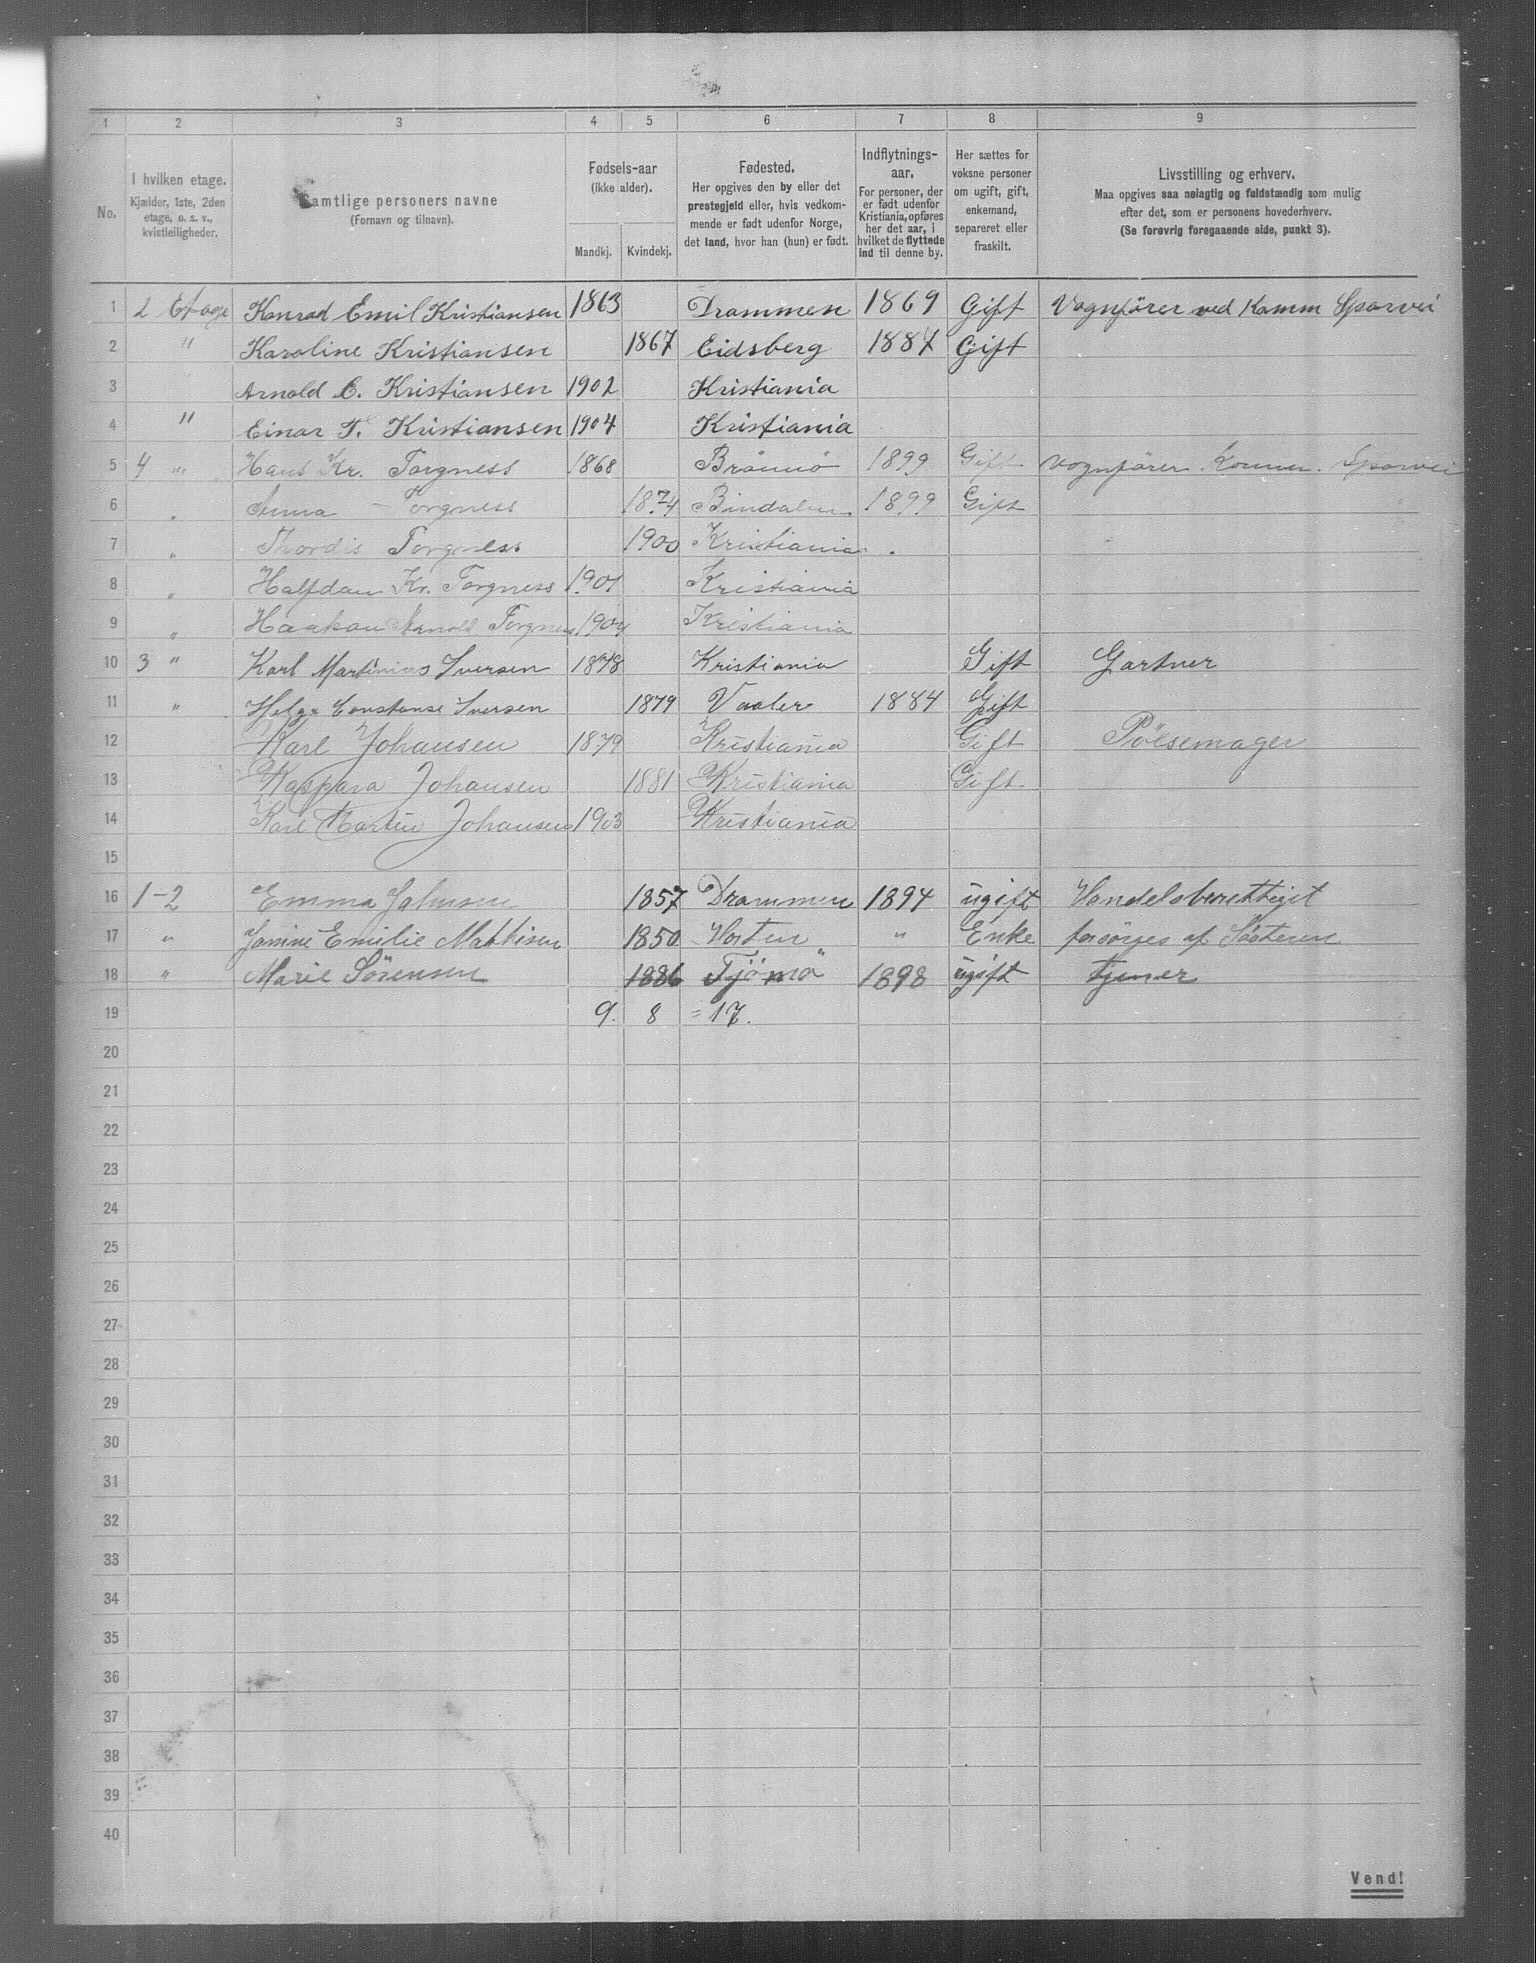 1 2 3 4 5 6 7 8 9
No. I hvilken etage. Kjælder, 1ste, 2den etage, o. s. v., kvistleiligheder. Samtlige personers navne (Fornavn og tilnavn). Fødsels-aar (ikke alder). Mandkj. Kvindekj. Fødested. Her opgives den by eller det prestegjeld eller, hvis vedkommende er født udenfor Norge, det land, hvor han (hun) er født. Indflytnings-aar. For personer, der er født udenfor Kristiania, opføres her det aar, i hvilket de flyttede ind til denne by. Her sættes for voksne personer om ugift, gift, enkemand, separeret eller fraskilt. Livsstilling og erhverv. Maa opgives saa nøiagtig og fuldstændig som mulig efter det, som er personens hovederhverv. (Se forøvrig foregaaende side, punkt 3).
1 2 Etage Konrad Emil Kristiansen 1863 Drammen 1869 Gift Vognfører ved Komm Sporvei
2 " Karoline Kristiansen 1867 Eidsberg 1887 Gift
3 Arnold C. Kristiansen 1902 Kristiania
4 " Einar T. Kristiansen 1904 Kristiania
5 4 " Hans Kr. Torgness 1868 Brönnö 1899 Gift Vognfører Komm. Sporvei
6 " Anna Torgness 1874 Bindalen 1899 Gift
7 " Thordis Torgness 1900 Kristiania
8 " Halfdan Kr. Torgness 1901 Kristiania
9 " Haakon Arnold Torgness 1904 Kristiania
10 3 " Karl Martinius Iversen 1878 Kristiania Gift Gartner
11 " Helga Constanse Iversen 1879 Vaaler 1884 Gift
12 Karl Johansen 1879 Kristiania Gift Pölsemager
13 Kaspara Johansen 1881 Kristiania Gift
14 Karl Martin Johansen 1903 Kristiania
15
16 1-2 Emma Johnsen 1857 Drammen 1894 ugift Handelsberettiget
17 " Janine Emilie Mathisen 1850 Horten " Enke forsörges af Søsteren
18 " Marie Sörensen 1886 Tjömö 1898 ugift tjener
19 9. 8 = 17.
20
21
22
23
24
25
26
27
28
29
30
31
32
33
34
35
36
37
38
39
40
Vend!